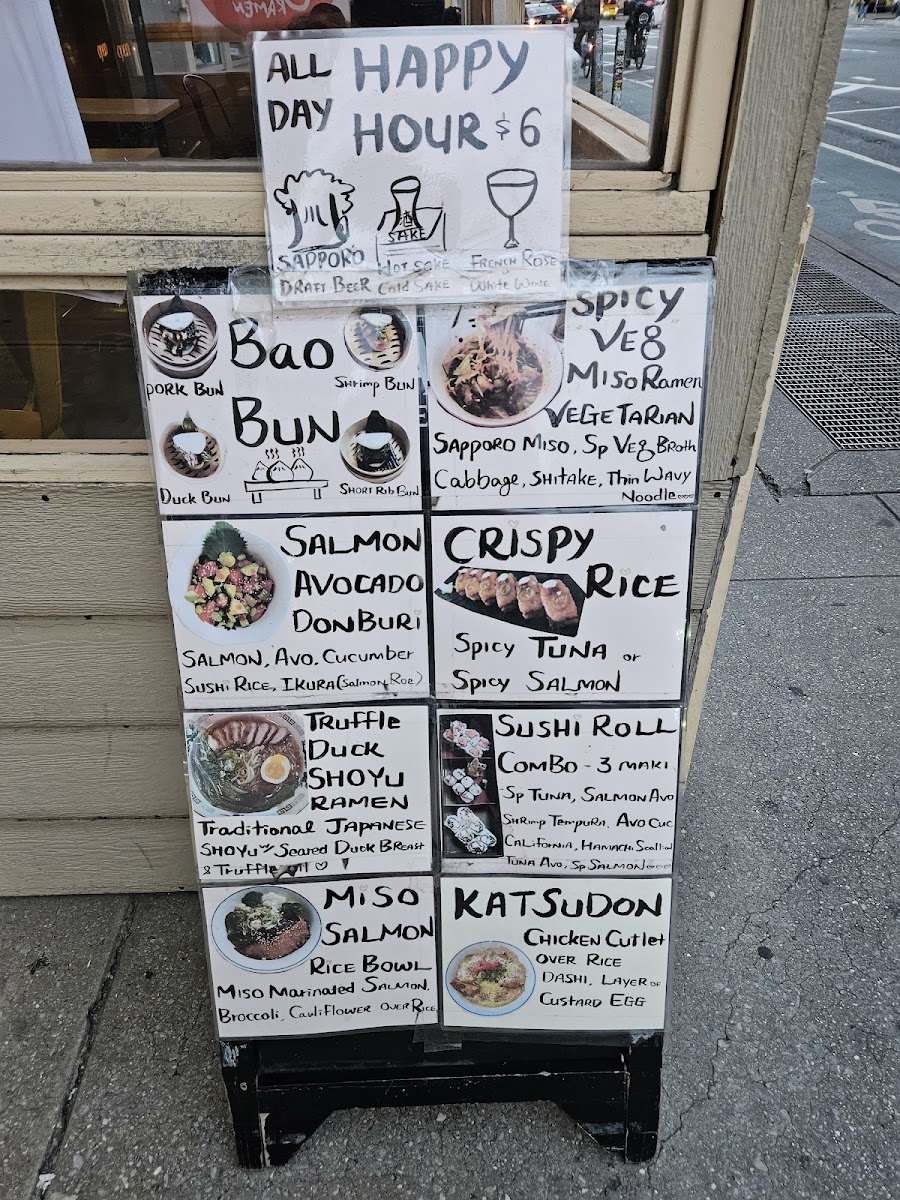 RAMEN
ALL DAY
HAPPY HOUR $6
酒
SAKE
SAPPORO
DRAFT BEER
HOT SAKE
Cold SAKE
FRENCH ROSE
WHITE WINE
Bao
BUN
PORK BUN
SHrimp BUN
Duck BUN
SHORT Rib BUN
SPICY
"VEG"
MISO RAMEN
VEGETARIAN
SAPPORO MISO, SP VEG BROTH
Cabbage, SHITAKE, THIN WAVY
NOODLE
SALMON
AVOCADO
DONBURI
SALMON, AVO. Cucumber
SUSHI RICE, IKURA (Salmon Roe)
CRISPY
RICE
SPICY TUNA or
SPICY SALMON
TRUffle
DUCK
SHOYU
RAMEN
Traditional JAPANESE
SHOYU w/ Seared DUCK BREAST
& Truffle oil ♡
SUSHI ROLL
COMBO - 3 MAKI
SP TUNA, SALMON AVO
SHRimp TEMPURA, AVO CUC
CALIFORNIA, HAMACHI Scallion
TUNA AVO, SP SALMON
MISO
SALMON
RICE BOWL
MISO Marinated SALMON,
Broccoli, Cauliflower OVER RICE
KATSUDON
CHICKEN Cutlet
OVER RICE
DASHI, LAYER OF
CUSTARD EGG